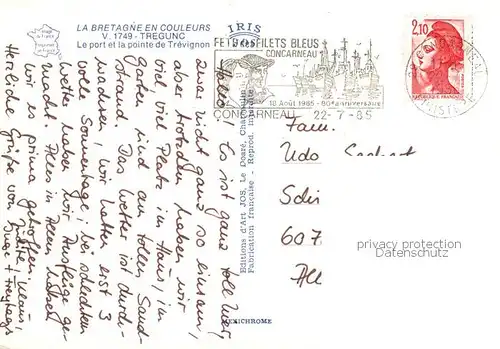 LA BRETAGNE EN COULEURS
V. 1749 - TREGUNC
Le port et la pointe de Trévignon
IRIS
JOS
FETE DES FILETS BLEUS
CONCARNEAU
18 Août 1985 - 80e anniversaire
CONCARNEAU 22-7-85
2,10
REPUBLIQUE FRANCAISE
Hallo! Es ist ganz toll hier,
zwar nicht ganz so einsam,
aber trotzdem haben wir
viel viel Platz im Haus, im
Garten und am tollen Sand-
strand. Das Wetter ist durch-
wachsen, wir hatten erst 3
volle Sonnentage! Bei schlechtem
Wetter haben wir Ausflüge ge-
macht. Alles in Allem haben
wir es prima getroffen.
Herzliche Grüße von
Klaus,
Editions d'Art JOS, Le Doaré, Châteaulin
Fabrication française - Reprod. interdite
MEXICHROME
Fam.
Udo
607
privacy protection
Datenschutz